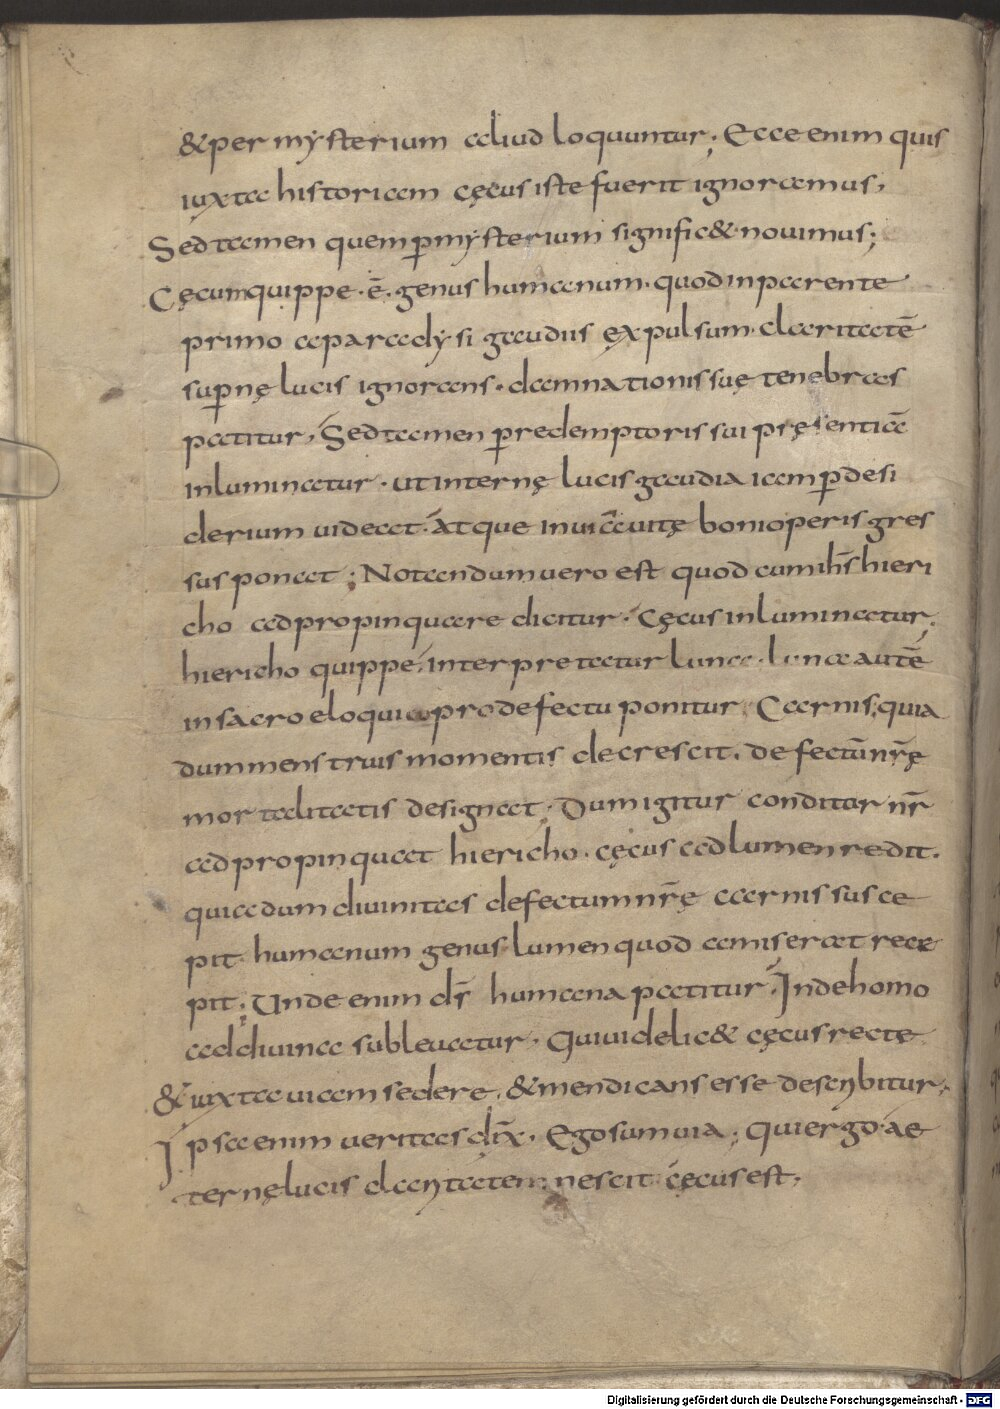 &per mysterium aliud loquuntur; Ecce enim quis
iuxta historiam cęcus iste fuerit ignoramus,
Sed tamen quem p̱ mysterium signific&·nouimus;
Cęcum quippe·ē·genus humanum·quod in parente
primo a paradysi gaudiis ęxpulsum·claritatē
sup̱nę lucis ignorans·damnationis suę tenebras
patitur, Sed tamen p̱ redemptoris sui pręsentiā
inluminatur·ut internę lucis gaudia iam p̱ desi
derium uideat·atque in uia uitę boni operis gres
sus ponat; Notandum uero est quod cum ih̄s hieri
cho adpropinquare dicitur·Cęcus inluminatur,
hiericho quippe interpretatur luna·luna autē
in sacro eloquio pro defectu ponitur Carnis; quia
dum menstruis momentis decrescit, defectū nr̄ę
mortalitatis designat; Dum igitur conditor nr̄
adpropinquat hiericho·cęcus ad lumen redit.
quia dum diuinitas defectum nr̄ę carnis susce
pit·humanum genus lumen quod amiserat rece
pit; Unde enim ds̄ humana patitur, Inde homo
ad diuina subleuatur, Qui uidelic& cęcus recte
& iuxta uiam sedere,&mendicans esse describitur,
Ipsa enim ueritas dix̄, Ego sum uia; Qui ergo ae
ternę lucis claritatem nescit cęcus est,
Digitalisierung gefördert durch die Deutsche Forschungsgemeinschaft - DFG